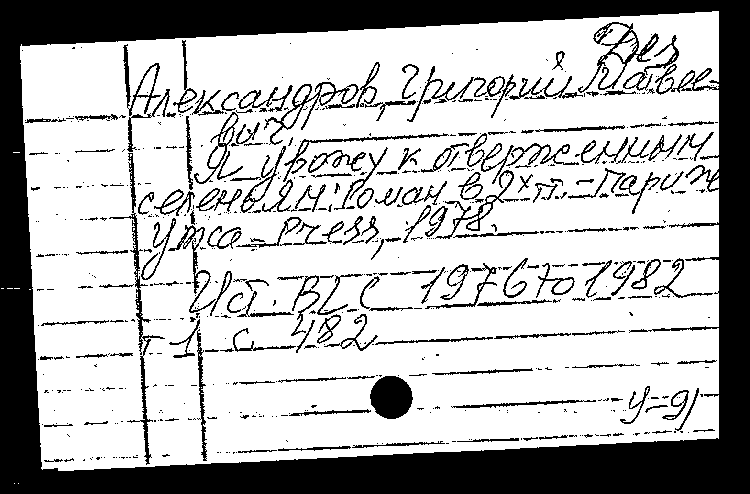 Дез
Александров, Григорий Матвее-
вич,
Я увожу к отверженным
селеньям: Роман в 2х тт. - Париж
Ymca-Press, 1978.
Ист. BLC 1976 to 1982
т 1 с. 482
У=9/